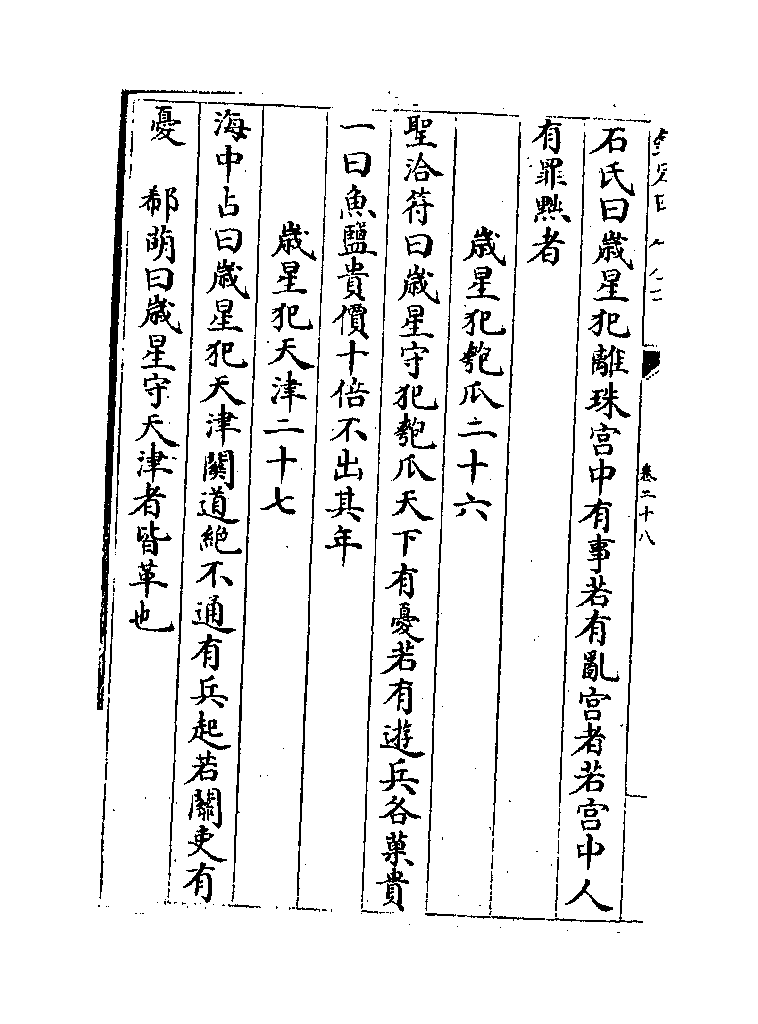 卷二十八
石氏曰歳星犯離珠宫中有事若有亂宫者若宫中人
有罪黜者
歳星犯匏瓜二十六
聖洽符曰歳星守犯匏瓜天下有憂若有遊兵各菓貴
一曰魚鹽貴價十倍不出其年
歳星犯天津二十七
海中占曰歳星犯天津關道絶不通有兵起若關吏有
憂 郗萌曰歳星守天津者皆革也